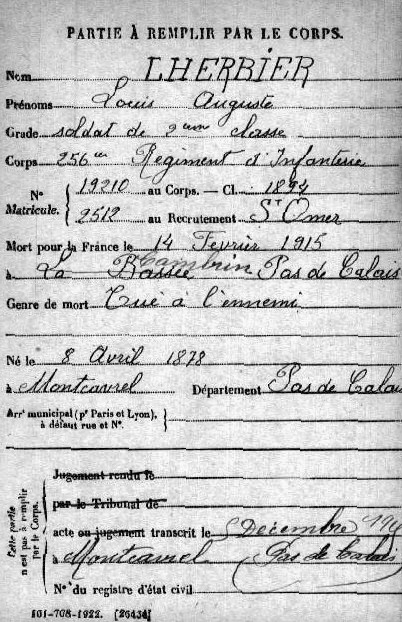 PARTIE À REMPLIR PAR LE CORPS.
Nom LHERBIER
Prénoms Louis Auguste
Grade soldat de 2eme classe
Corps 256e Régiment d'Infanterie
N° Matricule. { 19210 au Corps. — Cl. 1894
2512 au Recrutement St Omer
Mort pour la France le 14 Fevrier 1915
à La Bassée Cambrin Pas de Calais
Genre de mort Tué à l'ennemi
Né le 8 Avril 1878
à Montcavrel Département Pas de Calais
Arrt municipal (pr Paris et Lyon), à défaut rue et N°.
Cette partie n'est pas à remplir par le Corps.
Jugement rendu le
par le Tribunal de
acte ou jugement transcrit le Décembre
à Montcavrel Pas de Calais
N° du registre d'état civil
101-708-1922. [26434]